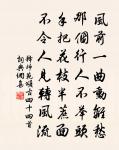 風前一曲動離愁
那個行人不舉頭
手把花枝半遮面
不令人見轉風流
釋師範頌古四十四首
詞典網集